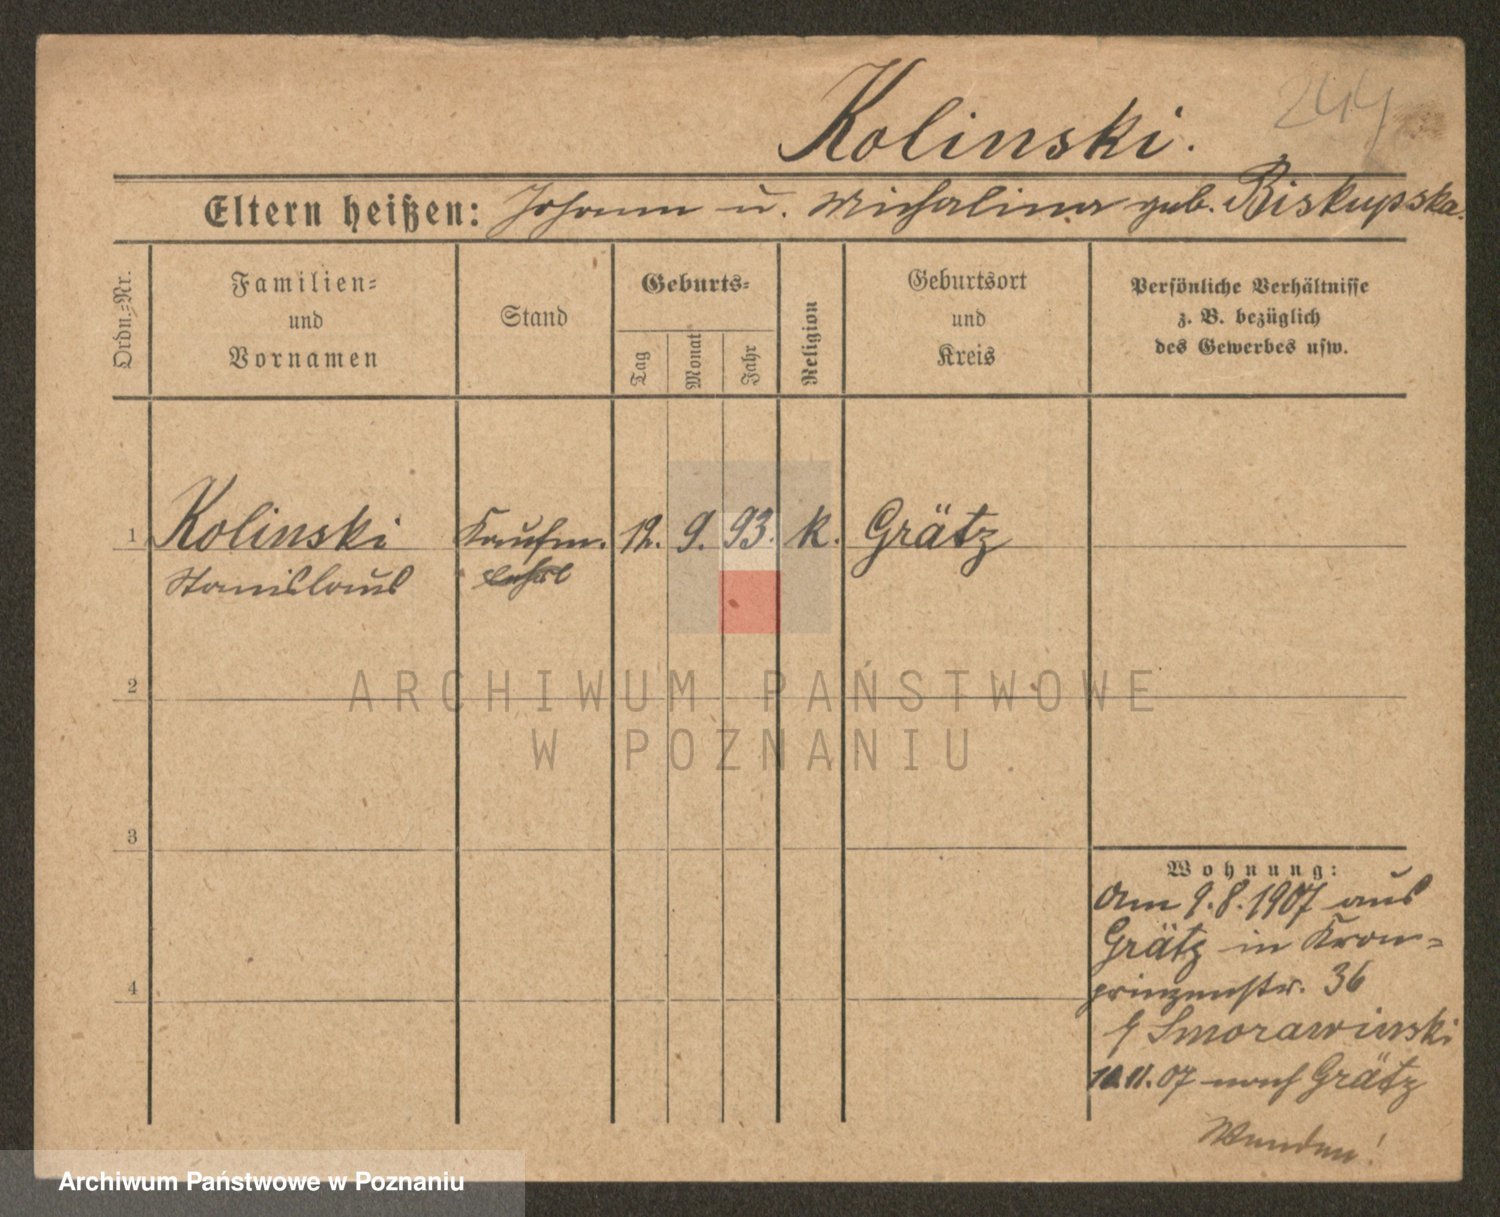 244
Kolinski.
Eltern heißen: Johann u. Michalina geb. Biskupska.
Ordn.-Nr.
Familien-
und
Vornamen
Stand
Geburts-
Tag
Monat
Jahr
Religion
Geburtsort
und
Kreis
Persönliche Verhältnisse
z. B. bezüglich
des Gewerbes usw.
1 Kolinski Kaufm. 12. 9. 93. k. Grätz
Stanislaus
2
ARCHIWUM PAŃSTWOWE
W POZNANIU
3
Wohnung:
Am 9.8.1907 aus
Grätz in Kron-
prinzenstr. 36
4
Smorawinski
11.07 nach Grätz
Wenden!
Archiwum Państwowe w Poznaniu